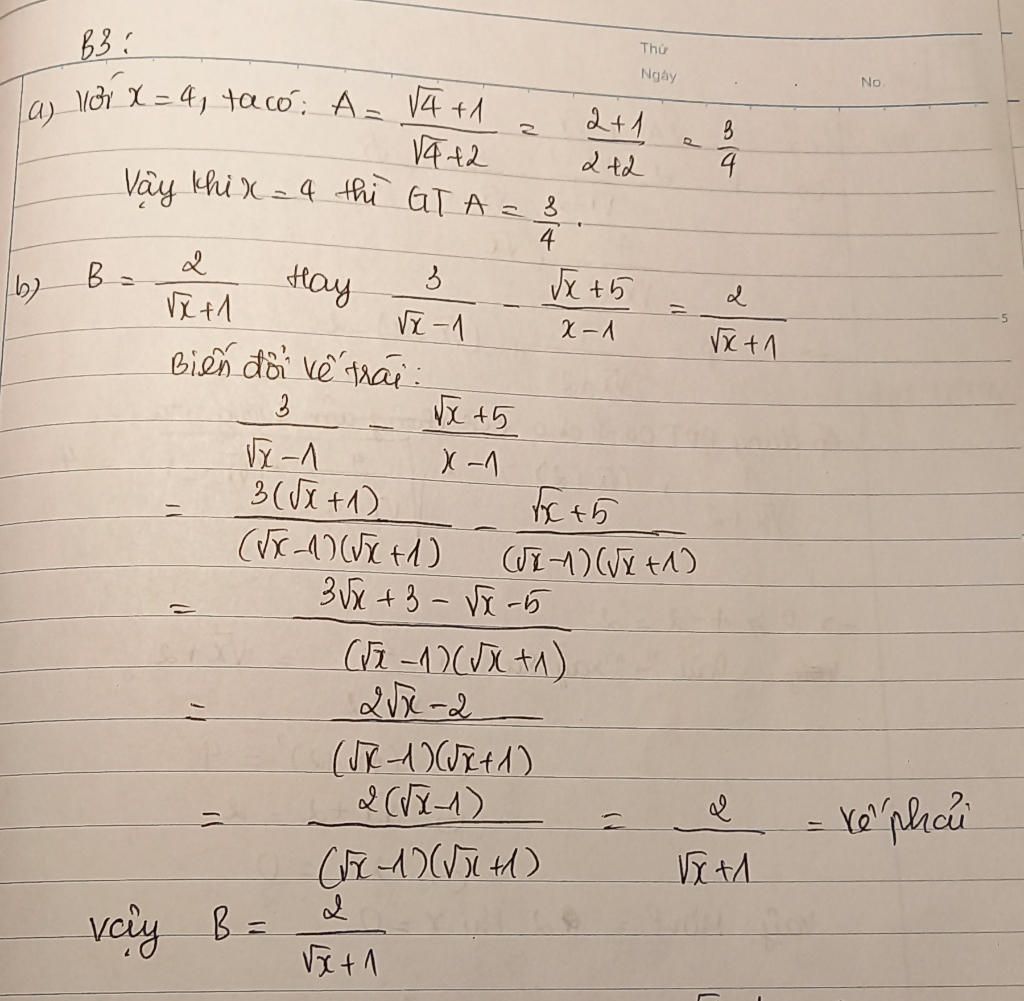 B3:
Thứ
Ngày . . No.
a) Với x = 4, ta có: A = \frac{√4 + 1}{√4 + 2} = \frac{2+1}{2+2} = \frac{3}{4}
Vậy khi x = 4 thì GT A = \frac{3}{4}.
b) B = \frac{2}{√x + 1} Hay \frac{3}{√x - 1} - \frac{√x + 5}{x - 1} = \frac{2}{√x + 1}
5
Biến đổi vế trái:
\frac{3}{√x - 1} - \frac{√x + 5}{x - 1}
= \frac{3(√x + 1)}{(√x - 1)(√x + 1)} - \frac{√x + 5}{(√x - 1)(√x + 1)}
= \frac{3√x + 3 - √x - 5}{(√x - 1)(√x + 1)}
= \frac{2√x - 2}{(√x - 1)(√x + 1)}
= \frac{2(√x - 1)}{(√x - 1)(√x + 1)} = \frac{2}{√x + 1} = vế phải
Vậy B = \frac{2}{√x + 1}